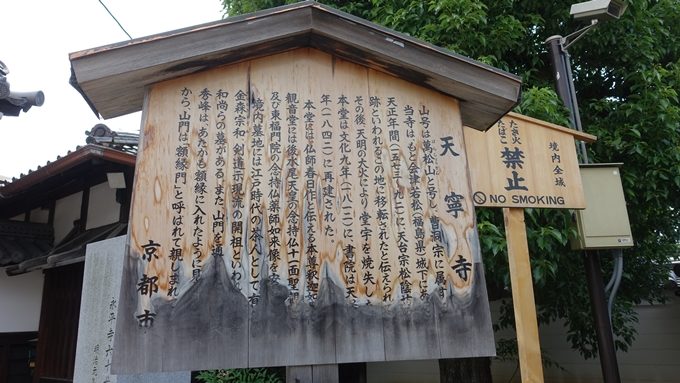 天寧寺
山号は萬松山と号し、曹洞宗に属す
当寺はもと会津若松(福島県)城下にあ
天正年間(一五七三〜九二)に、天台宗松陰坊
跡といわれるこの地に移転されたと伝えられ
その後、天明の大火により堂宇を焼失し
本堂は文化九年(一八一二)に、書院は天
年(一八四二)に再建された。
本堂には、仏師春日作と伝える本尊釈迦如
観音堂には後水尾天皇の念持仏十一面聖観
及び東福門院の念持仏薬師如来像を安
境内墓地には、江戸時代の茶人として有
金森宗和、剣道示現流の開祖といわ
和尚らの墓がある。また、山門を通
秀峰は、あたかも額縁に入れたように見
から、山門は「額縁門」と呼ばれて親しまれ
京都市
境内全域
たき火
たばこ
禁止
NO SMOKING
永平寺六十